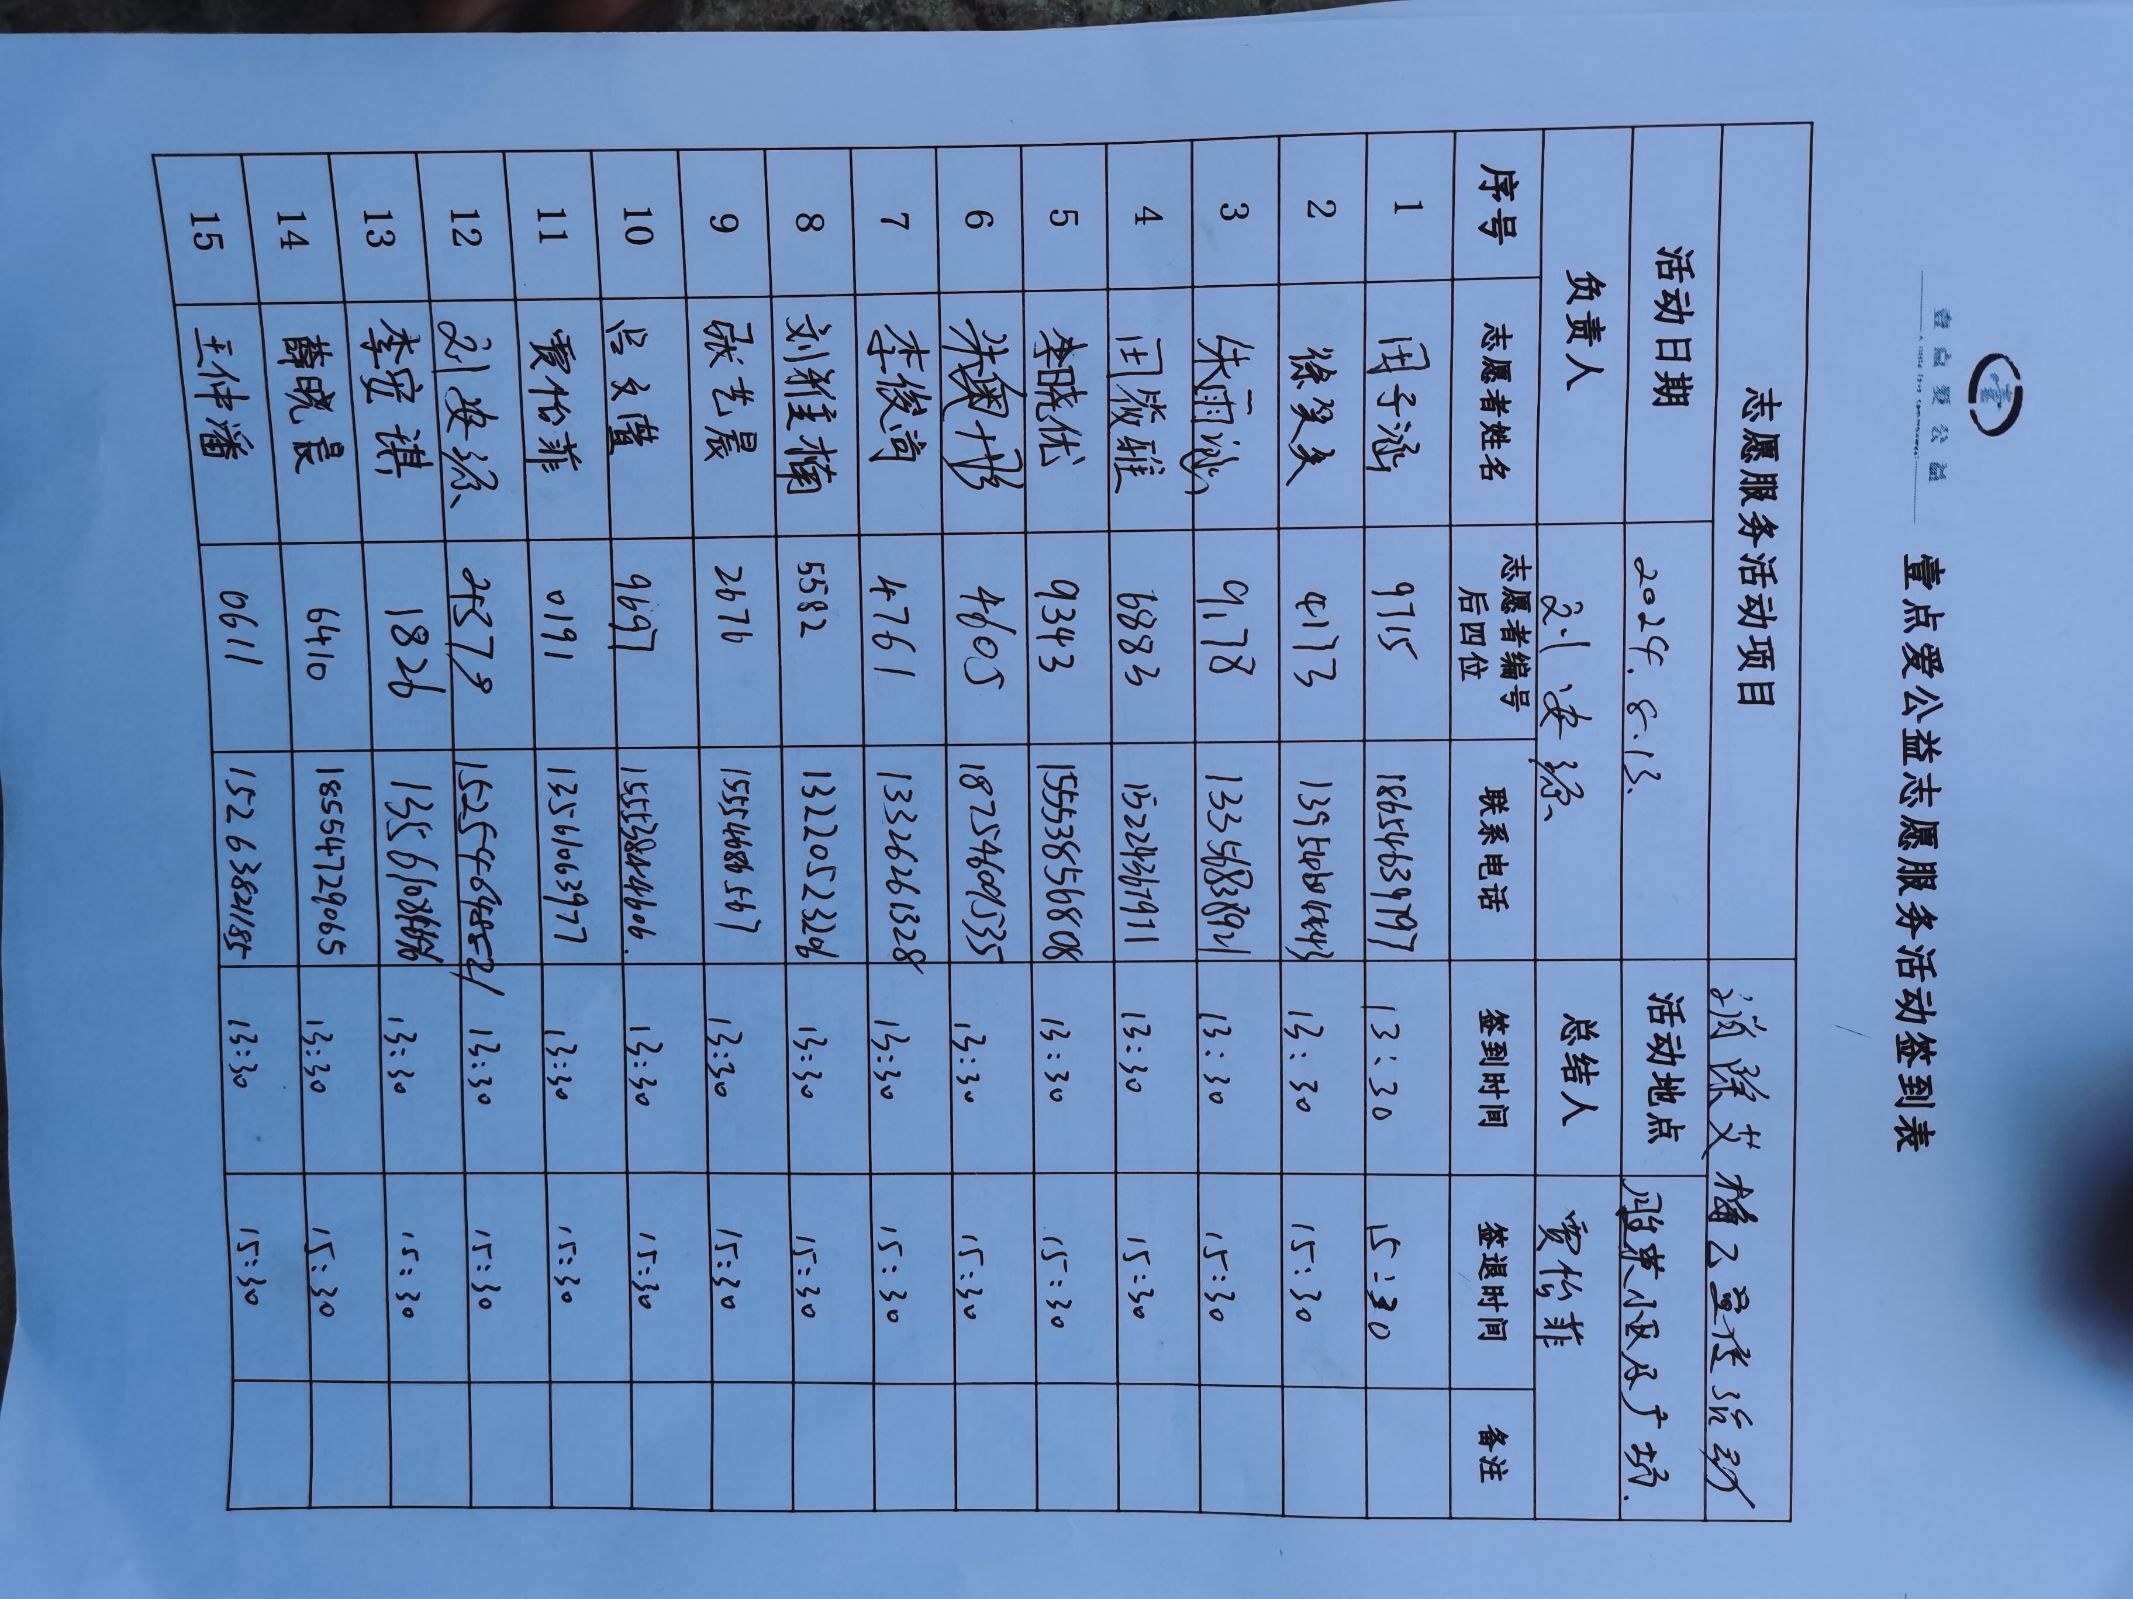 壹点爱公益
壹点爱公益志愿服务活动签到表
志愿服务活动项目 清除艾梅乙宣传活动
活动日期 2024.8.13 活动地点 殷集小区及广场
负责人 刘安琼 总结人 贾怡菲
序号 志愿者姓名 志愿者编号后四位 联系电话 签到时间 签退时间 备注
1 田子涵 9715 18654639797 13:30 15:30
2 徐癸癸 4173 13:30 15:30
3 朱雨涵 9178 13356838921 13:30 15:30
4 田筱雅 6883 15224367971 13:30 15:30
5 李晓优 9343 15553856808 13:30 15:30
6 4605 18754601535 13:30 15:30
7 李俊尚 4761 13326261328 13:30 15:30
8 刘雅楠 5582 13220523206 13:30 15:30
9 张艺晨 2676 15554686567 13:30 15:30
10 吕文萱 9697 13:30 15:30
11 贾怡菲 0191 13561063977 13:30 15:30
12 刘安琼 13:30 15:30
13 李安祺 1826 13:30 15:30
14 薛晓晨 6410 18554729065 13:30 15:30
15 王仲潘 0611 15263821185 13:30 15:30